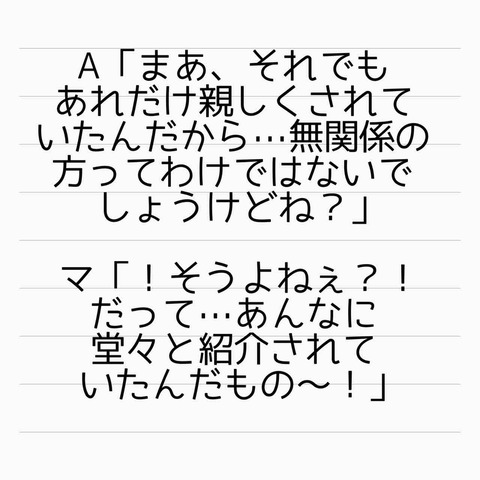 A「まあ、それでも
あれだけ親しくされて
いたんだから…無関係の
方ってわけではないで
しょうけどね？」
マ「！そうよねぇ？！
だって…あんなに
堂々と紹介されて
いたんだもの～！」